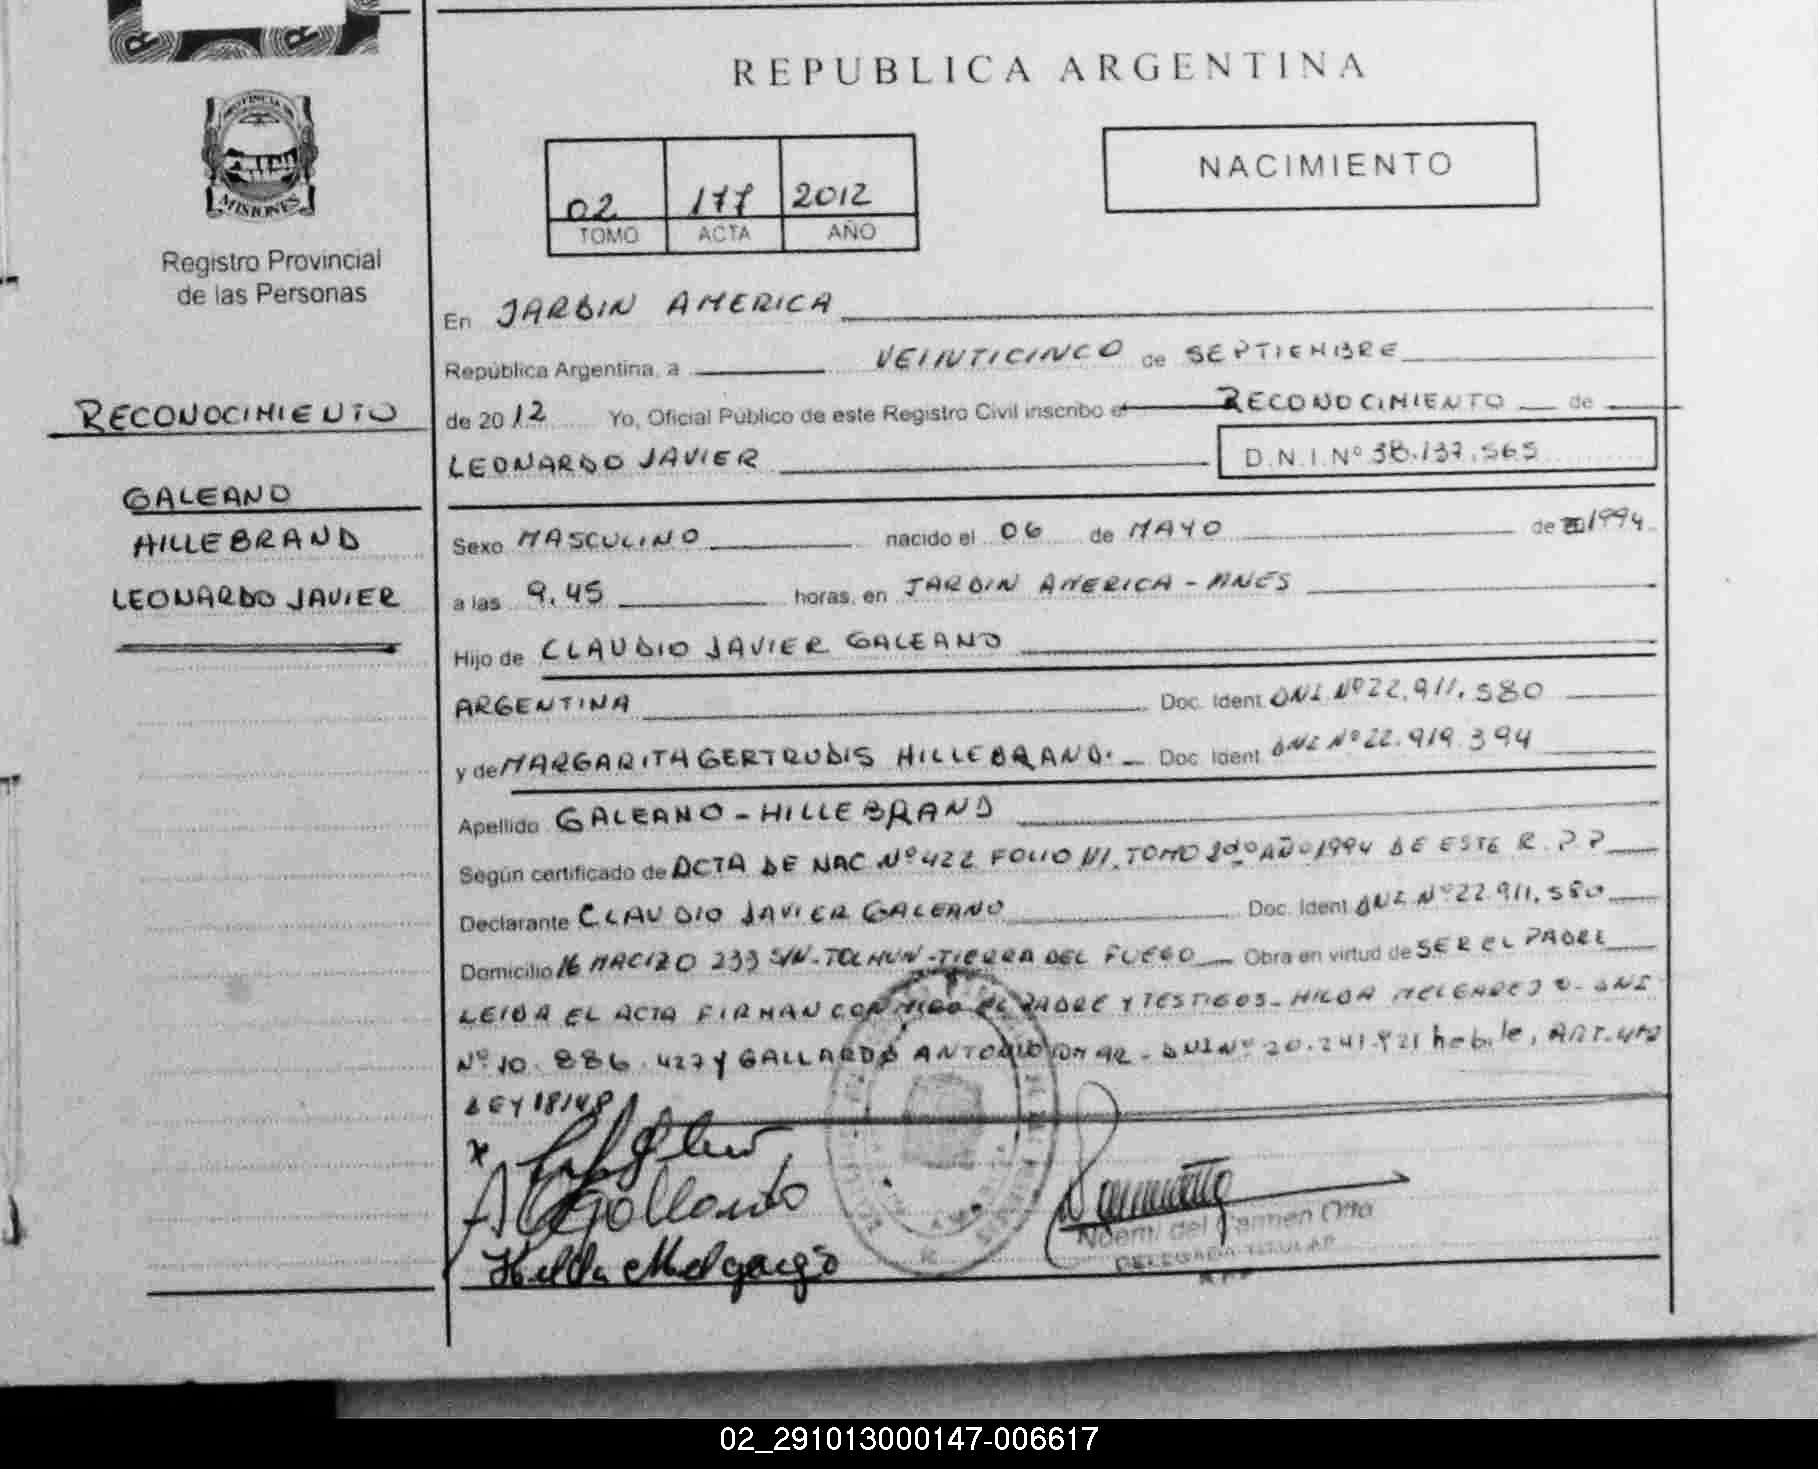 REPUBLICA ARGENTINA
PROVINCIA DE
MISIONES
Registro Provincial
de las Personas
02 177 2012
TOMO ACTA AÑO
NACIMIENTO
RECONOCIMIENTO
GALEANO
HILLEBRAND
LEONARDO JAVIER
En JARDIN AMERICA
República Argentina, a VEINTICINCO de SEPTIEMBRE
de 2012 Yo, Oficial Público de este Registro Civil inscribo el RECONOCIMIENTO de
LEONARDO JAVIER D.N.I. Nº 38.137.565
Sexo MASCULINO nacido el 06 de MAYO de 1994
a las 9.45 horas, en JARDIN AMERICA - MNES
Hijo de CLAUDIO JAVIER GALEANO
ARGENTINA Doc. Ident. DNI Nº 22.911.580
y de MARGARITA GERTRUDIS HILLEBRAND. Doc. Ident. DNI Nº 22.919.394
Apellido GALEANO - HILLEBRAND
Según certificado de ACTA DE NAC Nº 422 FOLIO TOMO AÑO 1994 DE ESTE R.P.P
Declarante CLAUDIO JAVIER GALEANO Doc. Ident. DNI Nº 22.911.580
Domicilio 16 MACIZO 233 S/N - TOLHUN - TIERRA DEL FUEGO Obra en virtud de SER EL PADRE
LEIDA EL ACTA FIRMAN CONMIGO EL PADRE Y TESTIGOS - HILDA MELGAREJO - DNI
Nº 10.886.427 Y GALLARDO ANTONIO OMAR - DNI Nº 20.241.821
LEY
Hilda Melgarejo
Noemi del Carmen Otto
DELEGADA TITULAR
R.P.P
02_291013000147-006617